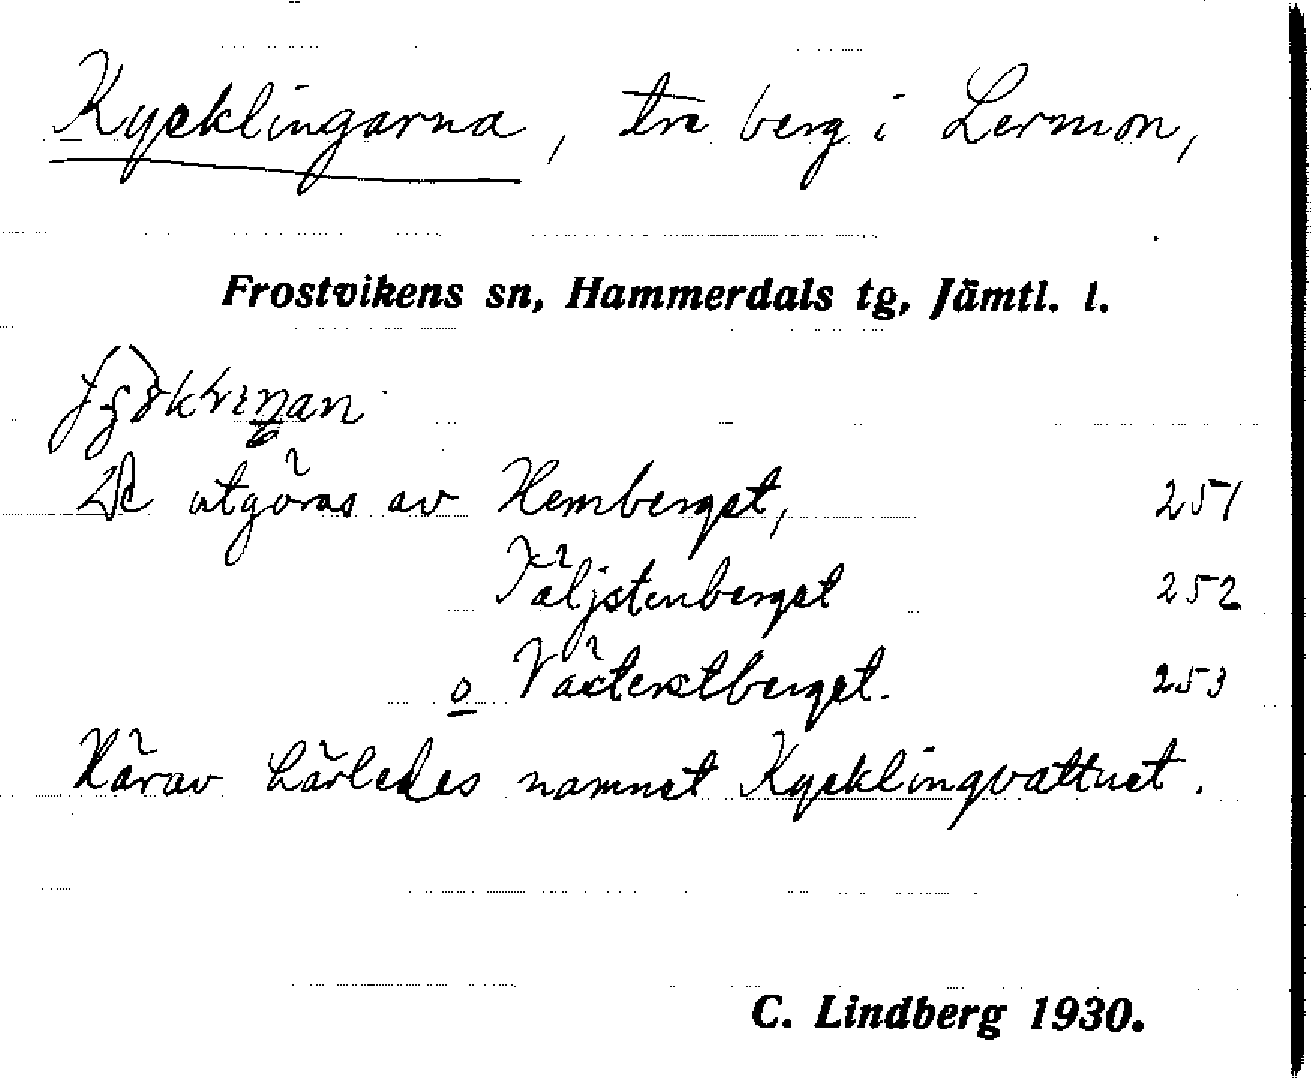 Kycklingarna, tre berg i Lermon,
Frostvikens sn, Hammerdals tg, Jämtl. l.
De utgöras av Hemberget, 251
Täljstenberget 252
o Västerstberget. 253
Härav härledes namnet Kycklingvattnet.
C. Lindberg 1930.